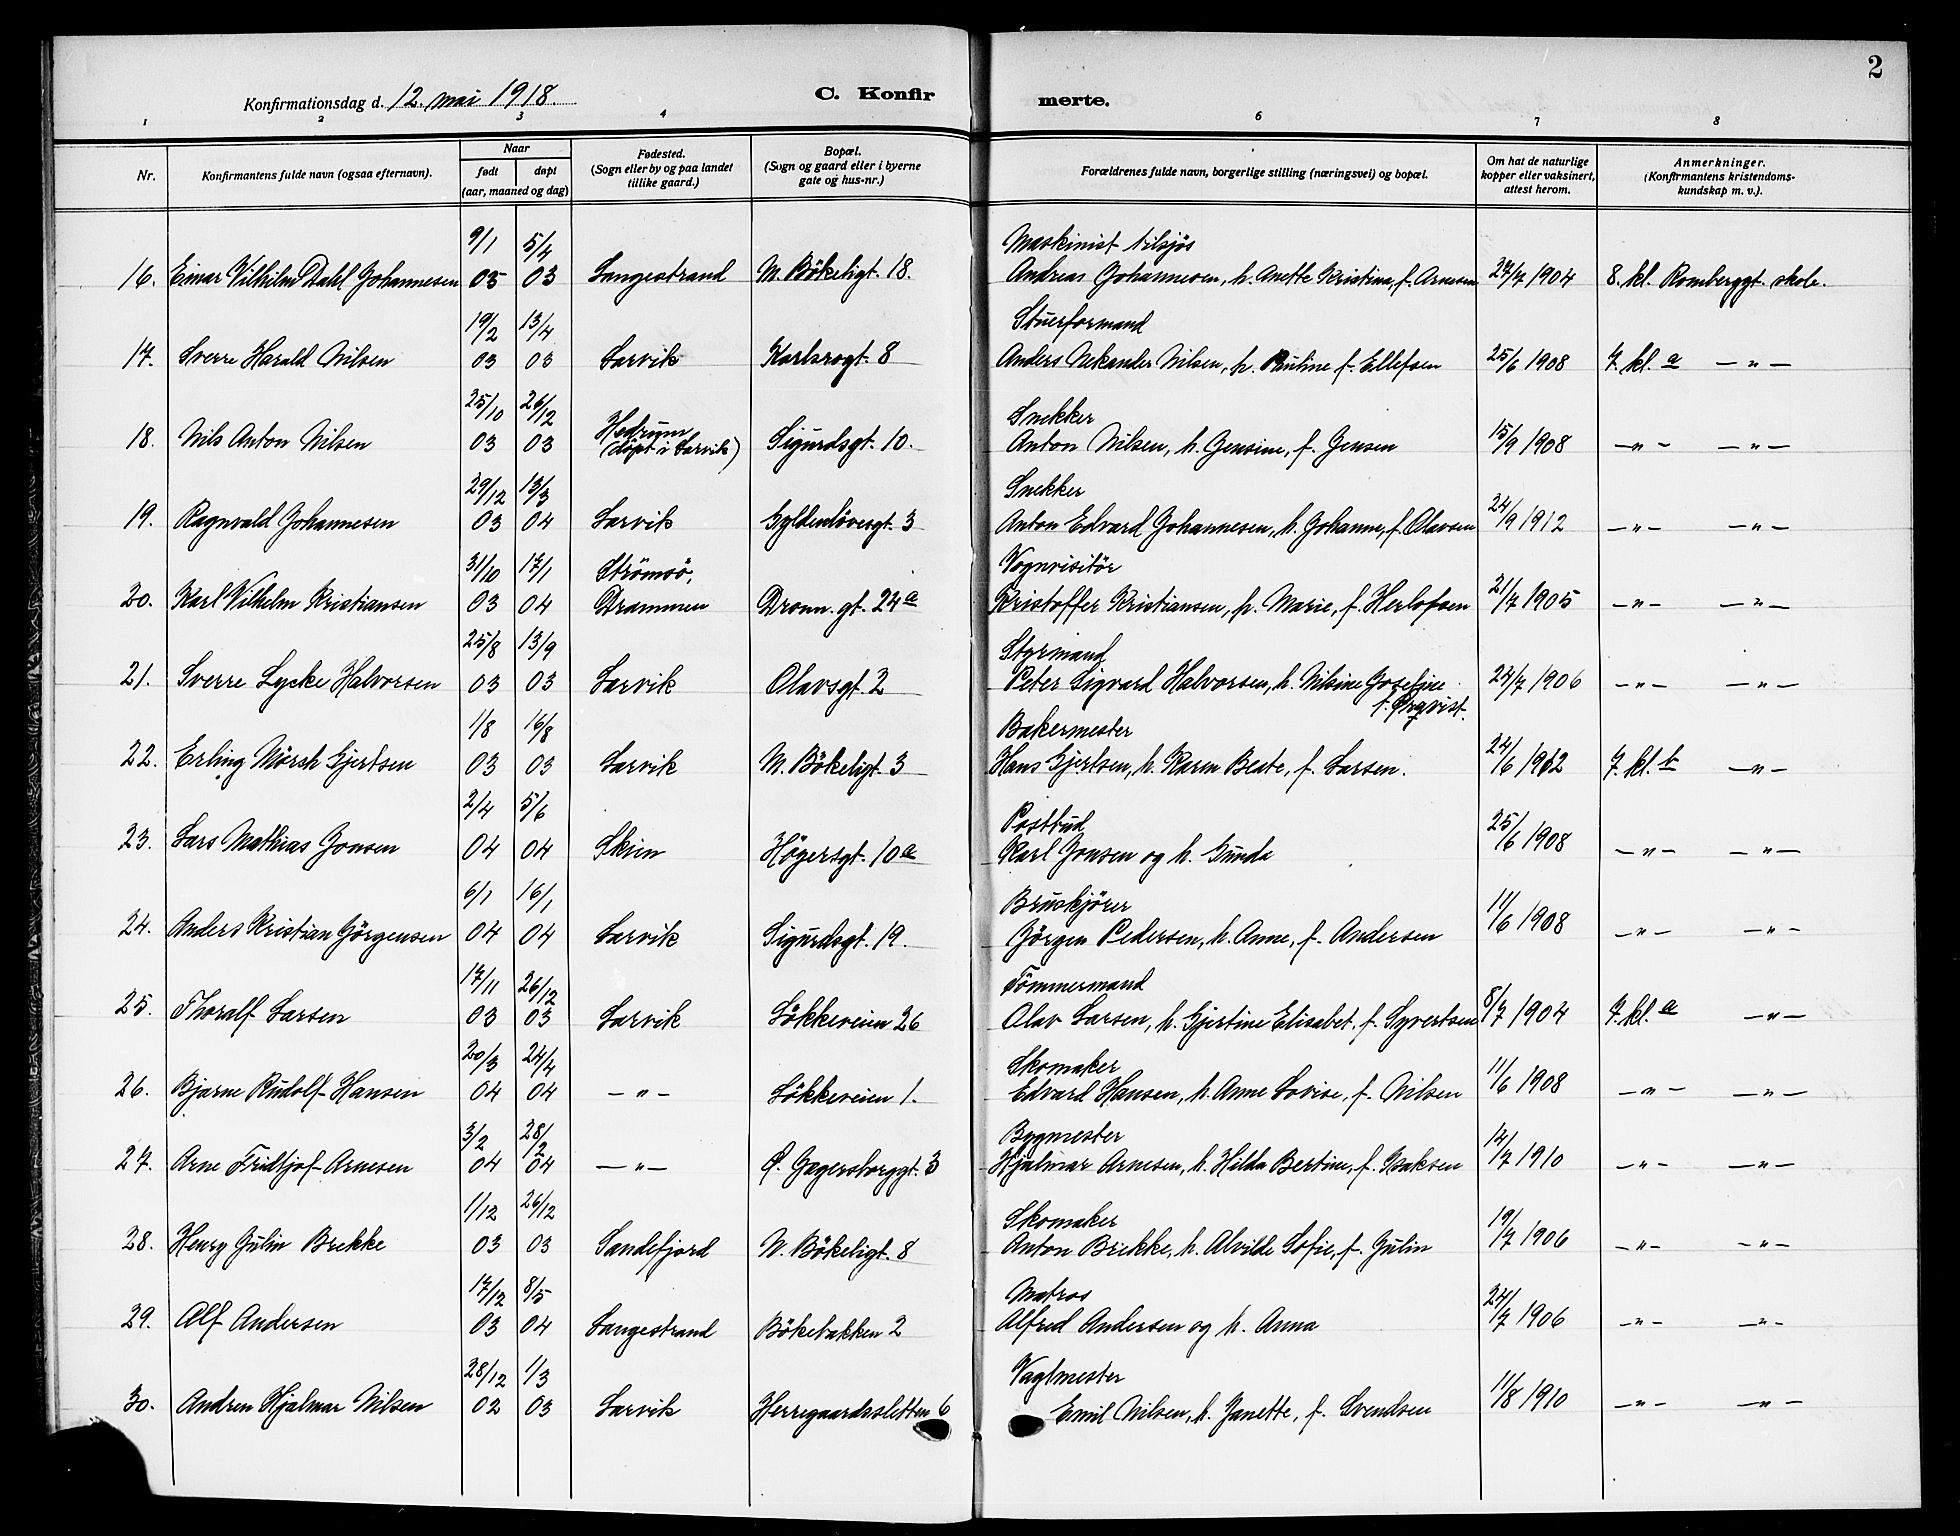 2
Konfirmationsdag d. 12. mai 1918.
C. Konfirmerte.
1 2 3 4 5 6 7 8
Nr. Konfirmantens fulde navn (ogsaa efternavn). Naar født døpt (aar, maaned og dag) Fødested. (Sogn eller by og paa landet tillike gaard.) Bopæl. (Sogn og gaard eller i byerne gate og hus-nr.) Forældrenes fulde navn, borgerlige stilling (næringsvei) og bopæl. Om hat de naturlige kopper eller vaksinert, attest herom. Anmerkninger. (Konfirmantens kristendoms-kundskap m. v.).
9/1 5/4 Maskinist tilsjøs
16. Einar Vilhelm Dahl Johannesen 03 03 Langestrand N. Bökeligt. 18. Andreas Johannesen, h. Anette Kristina, f. Arnesen 27/7 1904 8. kl. Romberggt. skole.
19/2 13/4 Stuerformand
17. Sverre Harald Nilsen 03 03 Larvik Karlsrogt. 8 Anders Nekander Nilsen, h. Pauline f. Ellefsen 25/6 1908 7. kl. a —"—
25/10 26/12 Snekker
18. Nils Anton Nilsen 03 03 Hedrum (döpt i Larvik) Sigurdsgt. 10. Anton Nilsen, h. Jensine, f. Jensen 15/9 1908 —"— —"—
29/12 13/3 Snekker
19. Ragnvald Johannesen 03 04 Larvik Gyldenlövesgt. 3 Anton Edvard Johannesen, h. Johanne, f. Olavsen 24/9 1912 —"— —"—
31/10 17/1 Strömsö, Vognvisitör
20. Karl Vilhelm Kristiansen 03 04 Drammen Dronn. gt. 24a Kristoffer Kristiansen, h. Marie, f. Herlofsen 21/7 1905 —"— —"—
25/8 13/9 Styrmand
21. Sverre Lycke Halvorsen 03 03 Larvik Olavsgt. 2 Peter Sigvard Halvorsen, h. Nilsine Josefine 24/7 1906 —"— —"—
1/8 16/8 Bakermester
22. Erling Mörch Gjertsen 03 03 Larvik N. Bökeligt. 3 Hans Gjertsen, h. Karen Beate, f. Larsen. 24/6 1912 7. kl. b —"—
2/4 5/6 Postbud
23. Lars Mathias Jonsen 04 04 Skien Högersgt. 10a Karl Jonsen og h. Gunda 25/6 1908 —"— —"—
6/1 16/1 Bruskjörer
24. Anders Kristian Jörgensen 04 04 Larvik Sigurdsgt. 19. Jörgen Pedersen, h. Anne, f. Andersen 11/6 1908 —"— —"—
17/11 26/12 Tömmermand
25. Thoralf Larsen 03 03 Larvik Lökkeveien 26 Olav Larsen, h. Gjertine Elisabet, f. Syvertsen 8/7 1904 7. kl. a —"—
20/3 24/4 Skomaker
26. Bjarne Rudolf Hansen 04 04 —"— Lökkeveien 1. Edvard Hansen, h. Anne Lovise, f. Nilsen 11/6 1908 —"— —"—
3/2 28/12 Bygmester
27. Arne Fridtjof Arnesen 04 04 —"— Ø. Jegersborggt. 3 Hjalmar Arnesen, h. Hilda Bertine, f. Isaksen 14/7 1910 —"— —"—
1/12 26/12 Skomaker
28. Henry Gulin Brekke 03 03 Sandefjord N. Bökeligt. 8 Anton Brekke, h. Alvilde Sofie, f. Gulin 19/7 1906 —"— —"—
17/12 8/5 Matros
29. Alf Andersen 03 04 Langestrand Bökebakken 2 Alfred Andersen og h. Anna 24/7 1906 —"— —"—
28/12 1/3 Vagtmester
30. Andren Hjalmar Nilsen 02 03 Larvik Herregaardssletten 6 Emil Nilsen, h. Janette, f. Svendsen 11/8 1910 —"— —"—